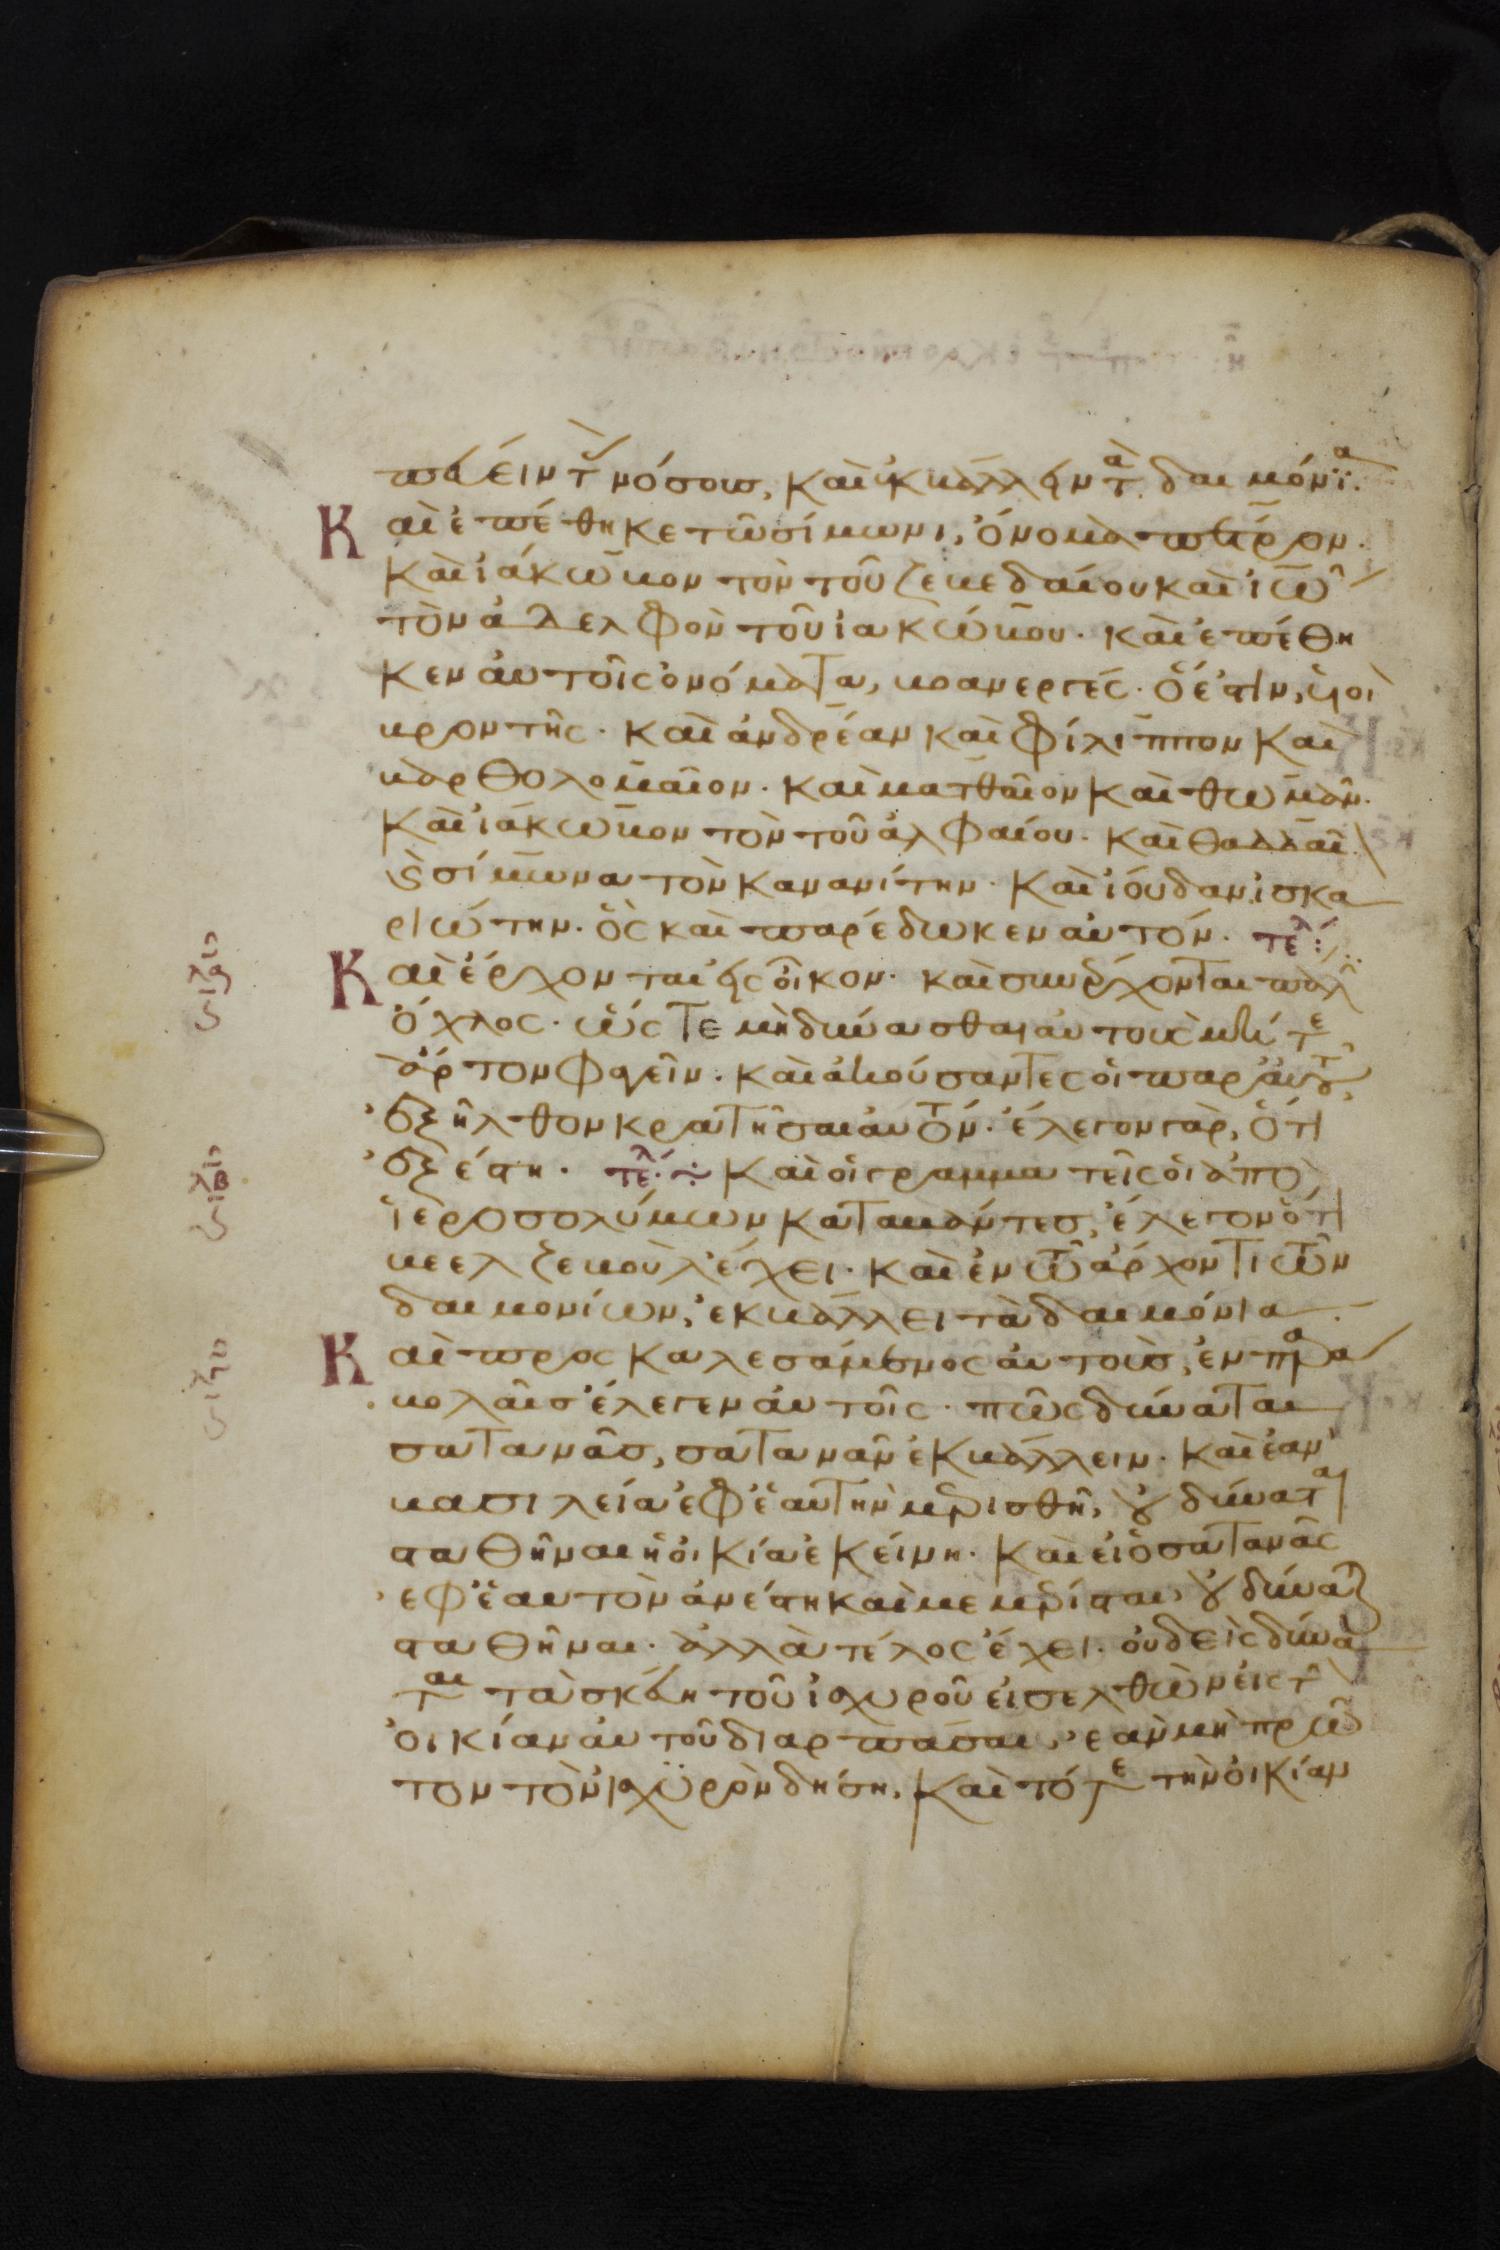 πεύειν τ̀ νόσους, καὶ ἐκβάλλειν τὰ δαιμόνϊα.
Καὶ ἐπέθηκε τῶ σίμωνι, ὄνομα πέτρον.
καὶ ϊάκωβον τὸν τοῦ ζεβεδαίου καὶ ϊω
τὸν ἀδελφὸν τοῦ ϊακώβου. καὶ ἐπέθη
κεν αὐτοῖς ὀνόματα, βοανεργές. ὅ ἐστιν, υἱοὶ
βροντῆς. καὶ ἀνδρέαν καὶ φίλιππον καὶ
βαρθολομαῖον. καὶ ματθαῖον καὶ θωμᾶν.
καὶ ϊάκωβον τὸν τοῦ ἀλφαίου. καὶ θαδδαῖ
ϗ σίμωνα τὸν κανανίτην. καὶ ϊούδαν ἰσκα
ριώτην. ὃς καὶ παρέδωκεν αὐτόν. τελ:
Καὶ ἔρχονται εἰς οἶκον. καὶ συνέρχονται παλ
ὄχλος. ὥς τε μὴ δύνασθαι αὐτοὺς μήτε
ἄρτον φαγεῖν. καὶ ἀκούσαντες οἱ παρ' αὐτοῦ,
ἐξῆλθον κρατῆσαι αὐτόν. ἔλεγον γὰρ, ὅτι
ἐξέστη. τελ: καὶ οἱ γραμματεῖς οἱ ἀπὸ
ἱεροσολύμων καταβάντες, ἔλεγον ὅτι
βεελζεβοὺλ ἔχει. καὶ ἐν τῶ ἄρχοντι τῶν
δαιμονίων, ἐκβάλλει τὰ δαιμόνια.
Καὶ προσκαλεσάμενος αὐτοὺς, ἐν παρα
βολαῖς ἔλεγεν αὐτοῖς. πῶς δύναται
σατανᾶς, σατανᾶν ἐκβάλλειν. καὶ ἐὰν
βασιλεία ἐφ' ἑαυτὴν μερισθῆ, οὐ δύναται
σταθῆναι ἡ οἰκία ἐκείνη. καὶ εἰ ὁ σατανᾶς
ἐφ' ἑαυτὸν ἀνέστη καὶ μεμέρισται, οὐ δύναται
σταθῆναι. ἀλλὰ τέλος ἔχει. οὐδεὶς δύνα
ται τὰ σκεύη τοῦ ἰσχυροῦ εἰσελθὼν εἰς τ
οἰκίαν αὐτοῦ διαρπάσαι, ἐὰν μὴ πρῶ
τον τὸν ἰσχϋρὸν δήση. καὶ τότε τὴν οἰκίαν